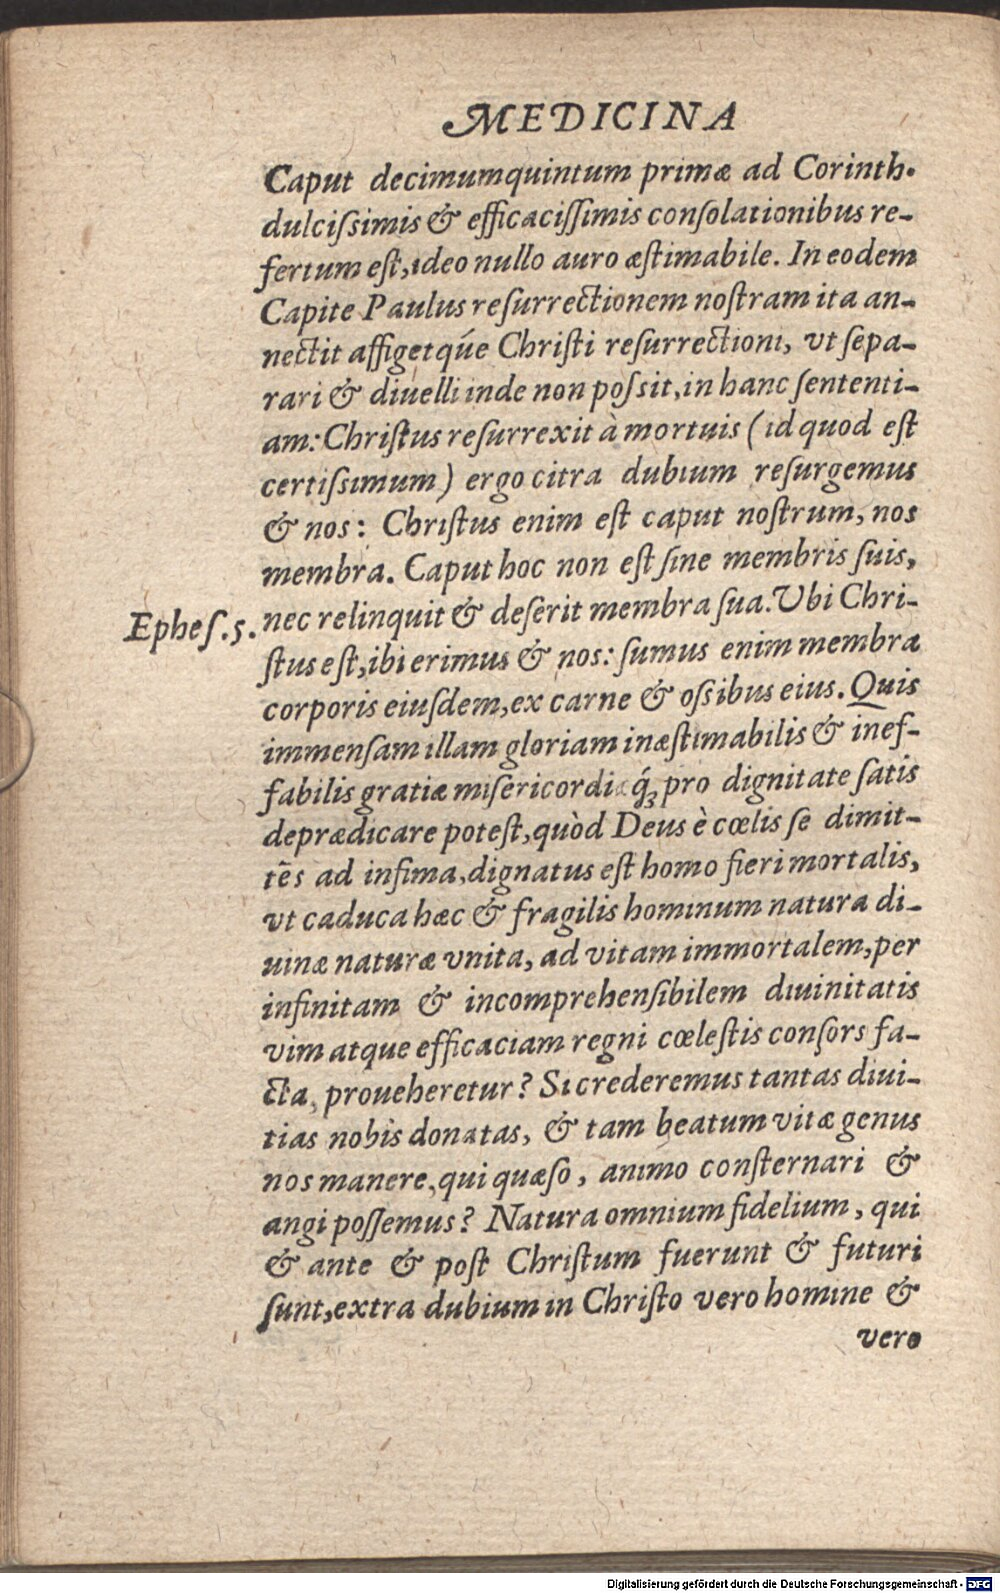 MEDICINA
Caput decimumquintum primæ ad Corinth.
dulcisſimis & efficaciſſimis conſolationibus re-
fertum eſt, ideo nullo auro æſtimabile. In eodem
Capite Paulus reſurrectionem noſtram ita an-
nectit affigetq́ue Chriſti reſurrectioni, vt ſepa-
rari & diuelli inde non poſsit, in hanc ſententi-
am: Chriſtus reſurrexit à mortuis (id quod eſt
certiſsimum) ergo citra dubium reſurgemus
& nos: Chriſtus enim eſt caput noſtrum, nos
membra. Caput hoc non eſt ſine membris ſuis,
Epheſ. 5.
nec relinquit & deſerit membra ſua. Vbi Chri-
ſtus eſt, ibi erimus & nos: ſumus enim membra
corporis eiuſdem, ex carne & oſsibus eius. Quis
immenſam illam gloriam inæſtimabilis & inef-
fabilis gratiæ miſericordiæq́ꝫ pro dignitate ſatis
deprædicare poteſt, quòd Deus è cœlis ſe dimit-
tẽs ad infima, dignatus eſt homo fieri mortalis,
vt caduca hæc & fragilis hominum natura di-
uinæ naturæ vnita, ad vitam immortalem, per
infinitam & incomprehenſibilem diuinitatis
vim atque efficaciam regni cœleſtis conſors fa-
cta, proueheretur? Si crederemus tantas diui-
tias nobis donatas, & tam beatum vitæ genus
nos manere, qui quæſo, animo conſternari &
angi poſſemus? Natura omnium fidelium, qui
& ante & poſt Chriſtum fuerunt & futuri
ſunt, extra dubium in Chriſto vero homine &
vero
Digitalisierung gefördert durch die Deutsche Forschungsgemeinschaft - DFG